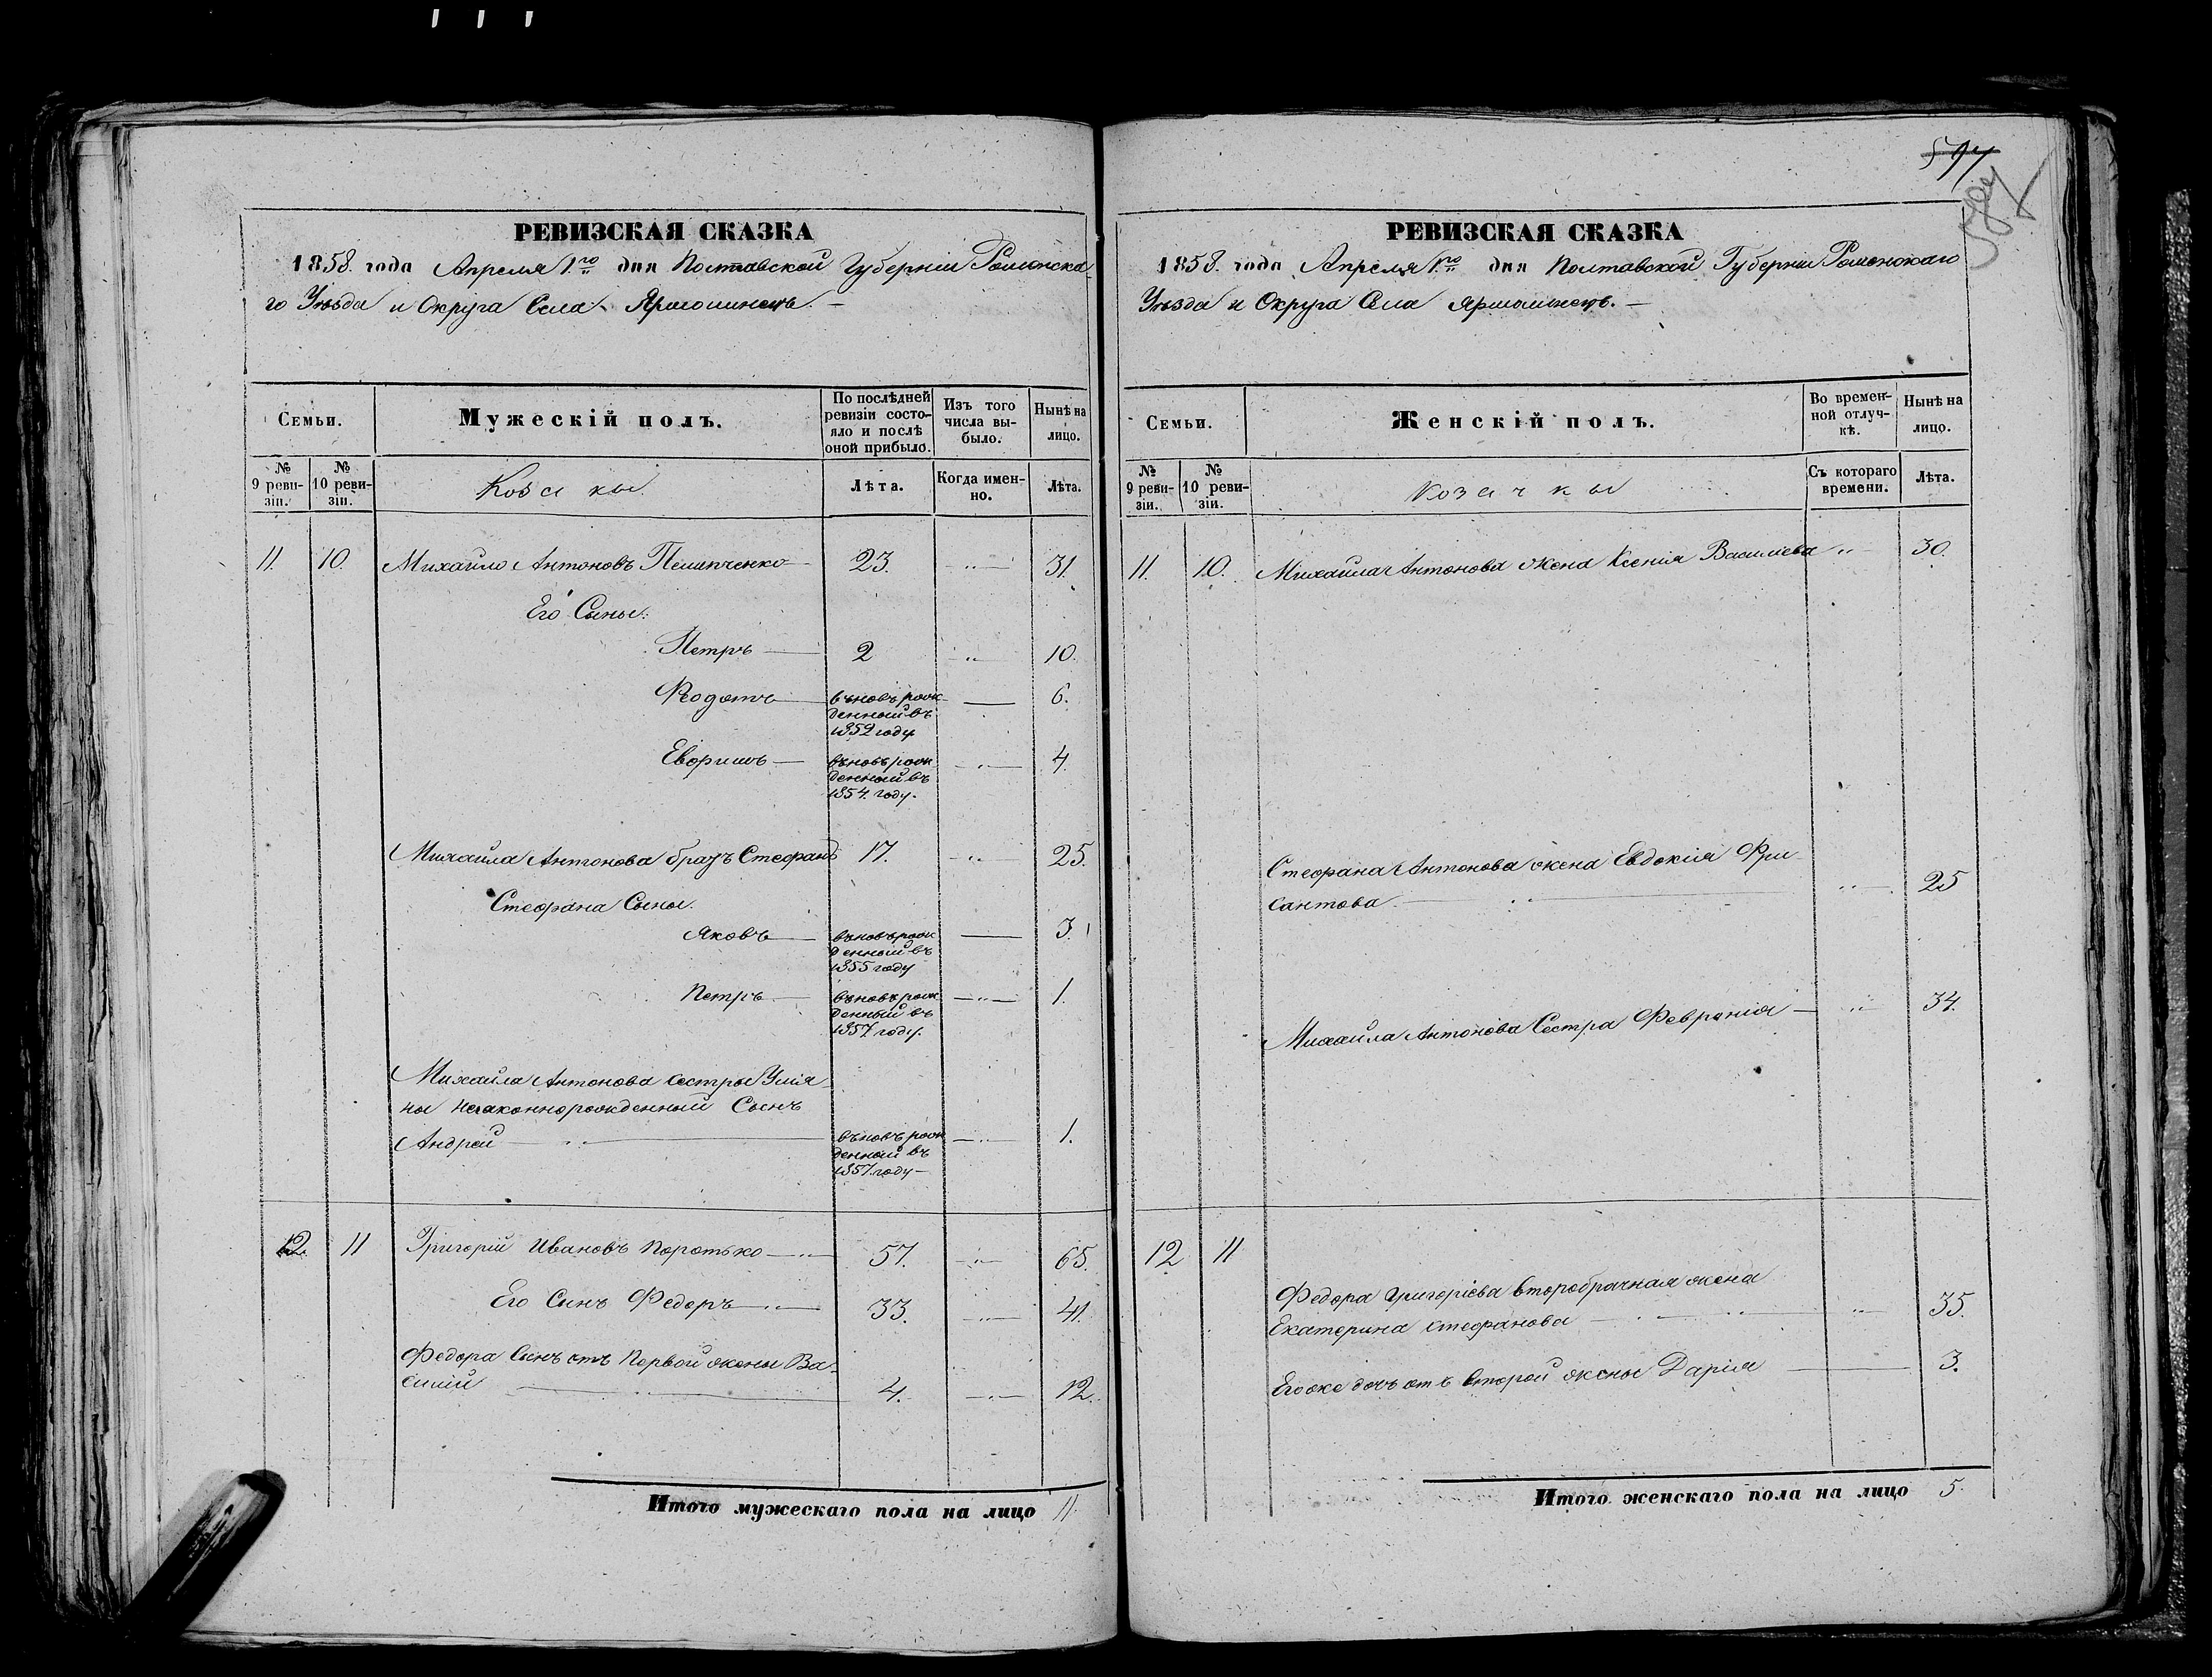 597
РЕВИЗСКАЯ СКАЗКА
1858. года Апреля 1.го дня Полтавской Губерніи Роменска
го Уѣзда и Округа Села Ярмолинецъ. —
Семьи.
Мужескій полъ.
По послѣдней ревизіи состояло и послѣ оной прибыло.
Изъ того числа выбыло.
Нынѣ на лицо.
№ 9 ревизіи.
№ 10 ревизіи.
Козаки.
Лѣта.
Когда именно.
Лѣта.
11. 10. Михайло Антоновъ 23. 31.
Его Сыны:
Петръ 2 10.
Ѳодотъ вновь рож 6.
денный въ
1852 году
вновь рож 4.
денный въ
1854 году.
Михайла Антонова братъ Стефанъ 17. 25.
Стефана Сыны.
Яковъ вновь рож 3.
денный въ
1855 году
Петръ вновь рож 1.
денный въ
1857. году.
Михайла Антонова сестры Улія
ны незаконнорожденный Сынъ
Андрей вновь рож 1.
денный въ
1857. году —
12. 11 Григорій Ивановъ Коротько 57. 65.
Его Сынъ Федоръ 33. 41.
Федора Сынъ отъ Первой жены Ва-
силій 4. 12.
Итого мужескаго пола на лицо 11.
РЕВИЗСКАЯ СКАЗКА
1858. года Апреля 1.го дня Полтавской Губерніи Роменскаго
Уѣзда и Округа Села Ярмолинецъ. —
Семьи.
Женскій полъ.
Во временной отлучкѣ.
Нынѣ на лицо.
№ 9 ревизіи.
№ 10 ревизіи.
Козачкы
Съ котораго времени.
Лѣта.
11. 10. Михайла Антонова жена Ксенія Василіева 30.
Стефана Антонова жена Евдокія Фри-
сантова 25
Михайла Антонова Сестра Февронія — 34.
12 11
Федора Григоріева второбрачная жена
Екатерина Стефанова 35.
Его же дочь отъ второй жены Дарія 3.
Итого женскаго пола на лицо 5.